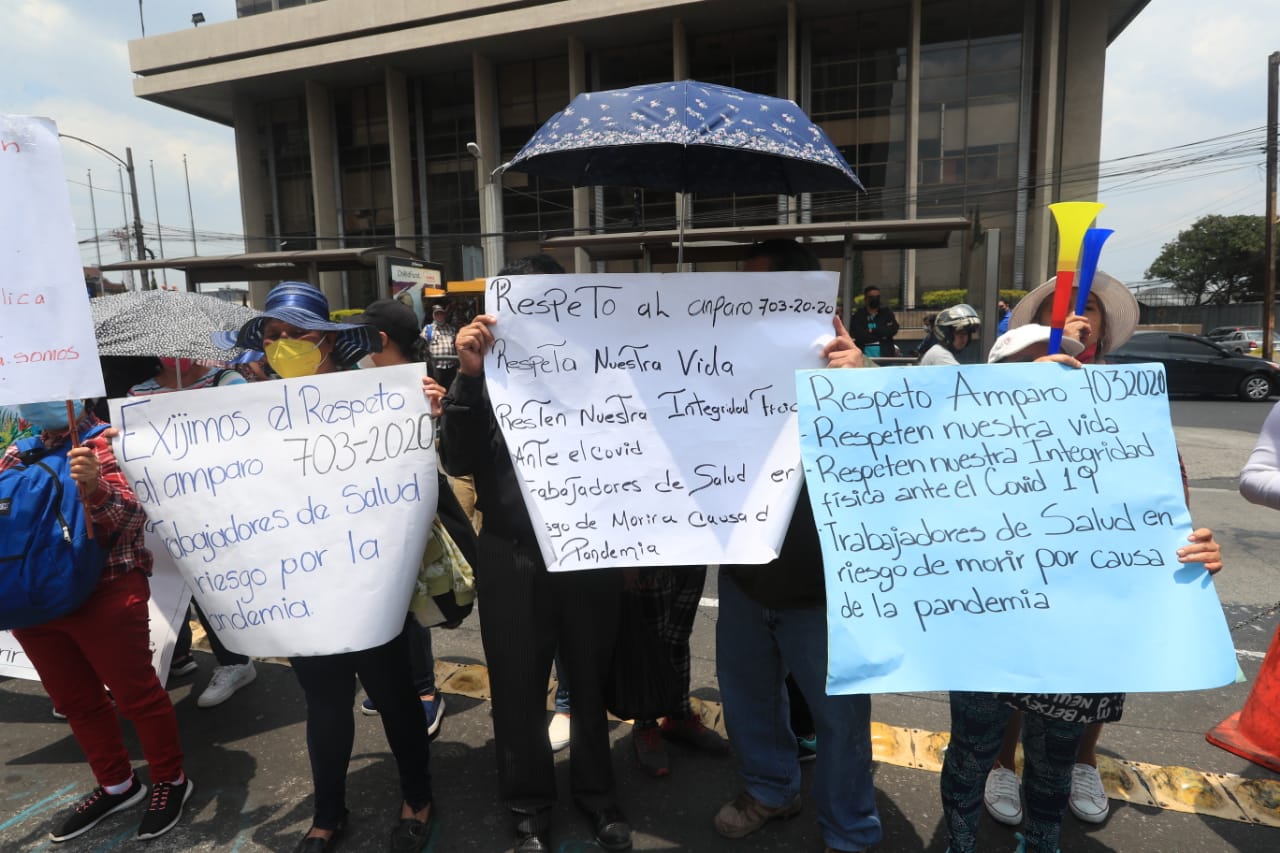 n
lica
a. somos
Exijimos el Respeto
al amparo 703-2020
Trabajadores de Salud en
riesgo por la
pandemia.
Respeto al amparo 703-20-20
Respeta Nuestra Vida
Resten Nuestra Integridad Fisic
Ante el covid
Trabajadores de Salud en
sgo de Morir a Causa d
Pandemia
Respeto Amparo 7032020
- Respeten nuestra vida
- Respeten nuestra Integridad
física ante el Covid 19
- Trabajadores de Salud en
riesgo de morir por causa
de la pandemia